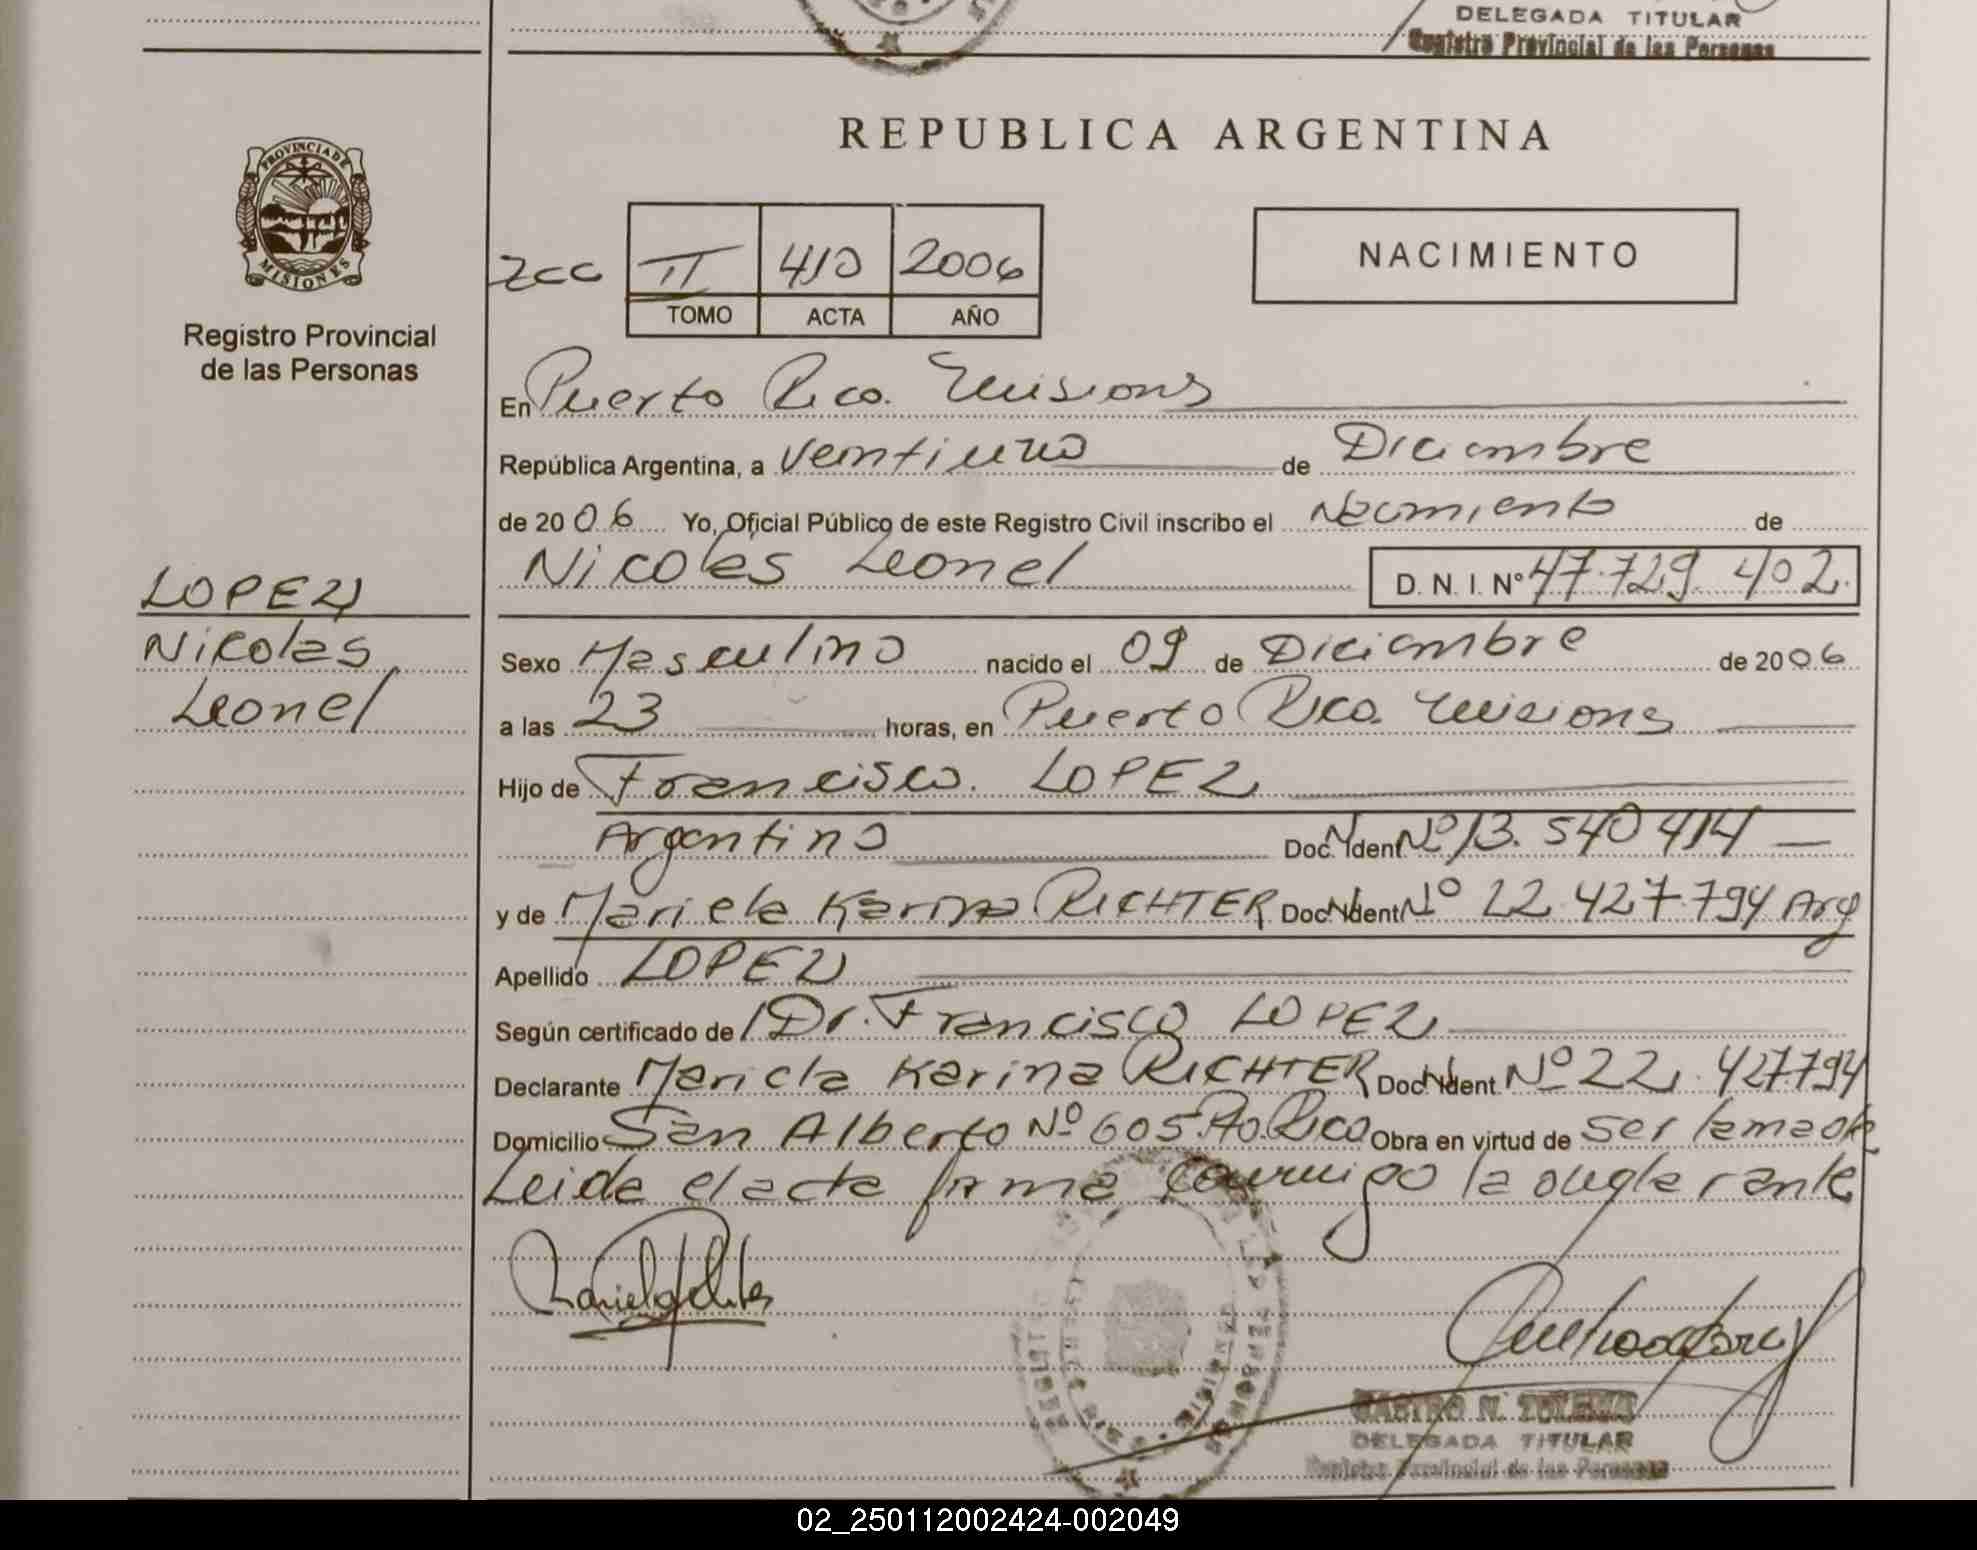 DELEGADA TITULAR
Registro Provincial de las Personas
REPUBLICA ARGENTINA
PROVINCIA DE
MISIONES
Registro Provincial
de las Personas
NACIMIENTO
II 410 2006
TOMO ACTA AÑO
En Puerto Rico. Misiones
República Argentina, a veintiuno de Diciembre
de 2006 Yo, Oficial Público de este Registro Civil inscribo el Nacimiento de
Nicolas Leonel D. N. I. Nº 47.729.402.
LOPEZ
Nicolas
Leonel
Sexo Masculino nacido el 09 de Diciembre de 2006
a las 23 horas, en Puerto Rico. Misiones
Hijo de Francisco. LOPEZ
Argentino Doc. Ident. Nº 13.540414
y de Mariela Karina RICHTER Doc. Ident. Nº 22.427.794 Arg
Apellido LOPEZ
Según certificado de Dr. Francisco LOPEZ
Declarante Mariela Karina RICHTER Doc. Ident. Nº 22.427.794
Domicilio San Alberto Nº 605 Pto. Rico Obra en virtud de ser la madre
Leida el acta firma conmigo la declarante
DELEGADA TITULAR
Registro Provincial de las Personas
02_250112002424-002049